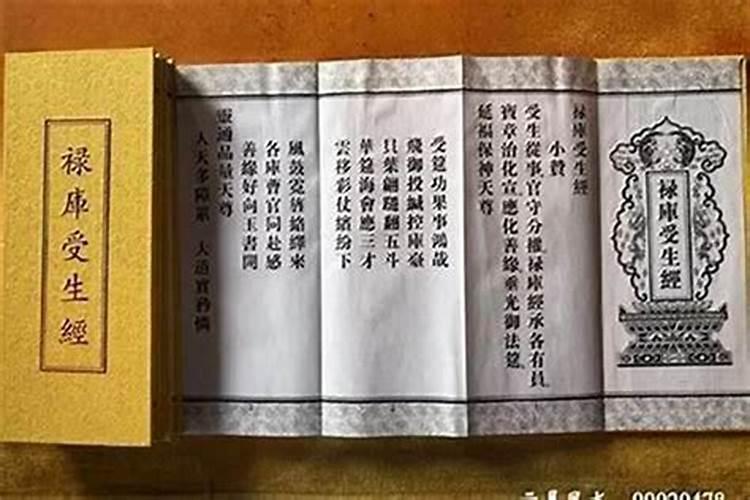 祿庫受生經
祿庫受生經
祿庫受生經
小贊
受生從事官守分權祿庫經承各有員
寶章治化宣應化善緣垂光御法筵
延福保神天尊
受筵功果事鴻哉
飛御投緘控庫臺
貝葉翩翻五斗
華筵海會應三才
雲移彩仗繽紛下
風鼓霓旌絡繹來
各庫曹官同赴感
善緣好向玉書開
靈通品量天尊
人天多障罪 大道實矜憐
00020478